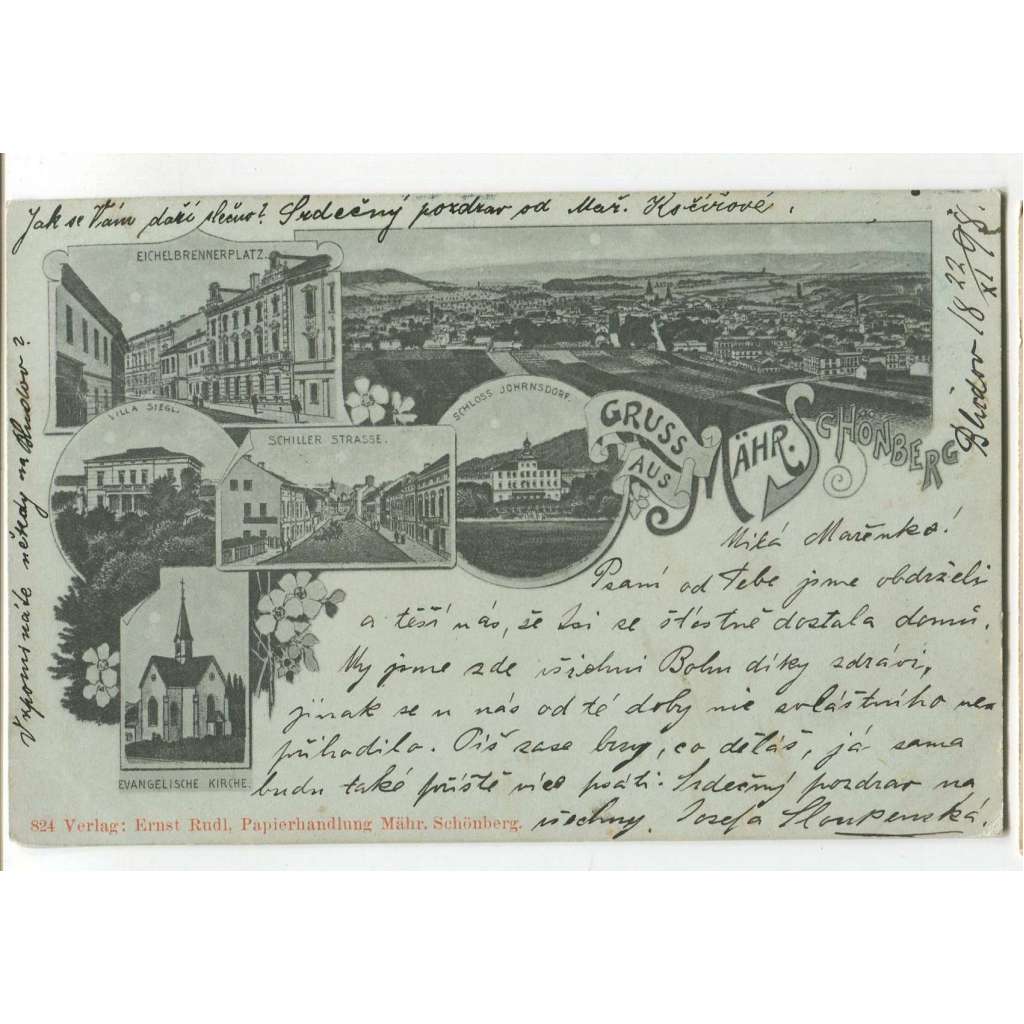 Jak se Vám daří slečno? Srdečný pozdrav od Mař. Kočířové.
EICHELBRENNERPLATZ.
VILLA SIEGL.
SCHILLER STRASSE.
SCHLOSS JOHRNSDORF.
GRUSS AUS MÄHR. SCHÖNBERG
Bludov 18 22/XI 98.
Vzpomínáte někdy na Bludov?
Milá Mařenko!
Psaní od Tebe jsme obdrželi
a těší nás, še Jsi se šťastně dostala domů.
My jsme zde všichni Bohu díky zdrávi,
jinak se u nás od té doby nic zvláštního ne=
přihodilo. Piš zase brzy, co děláš, já sama
budu také příště více psáti. Srdečný pozdrav na
všechny. Josefa
EVANGELISCHE KIRCHE.
824 Verlag: Ernst Rudl, Papierhandlung Mähr. Schönberg.